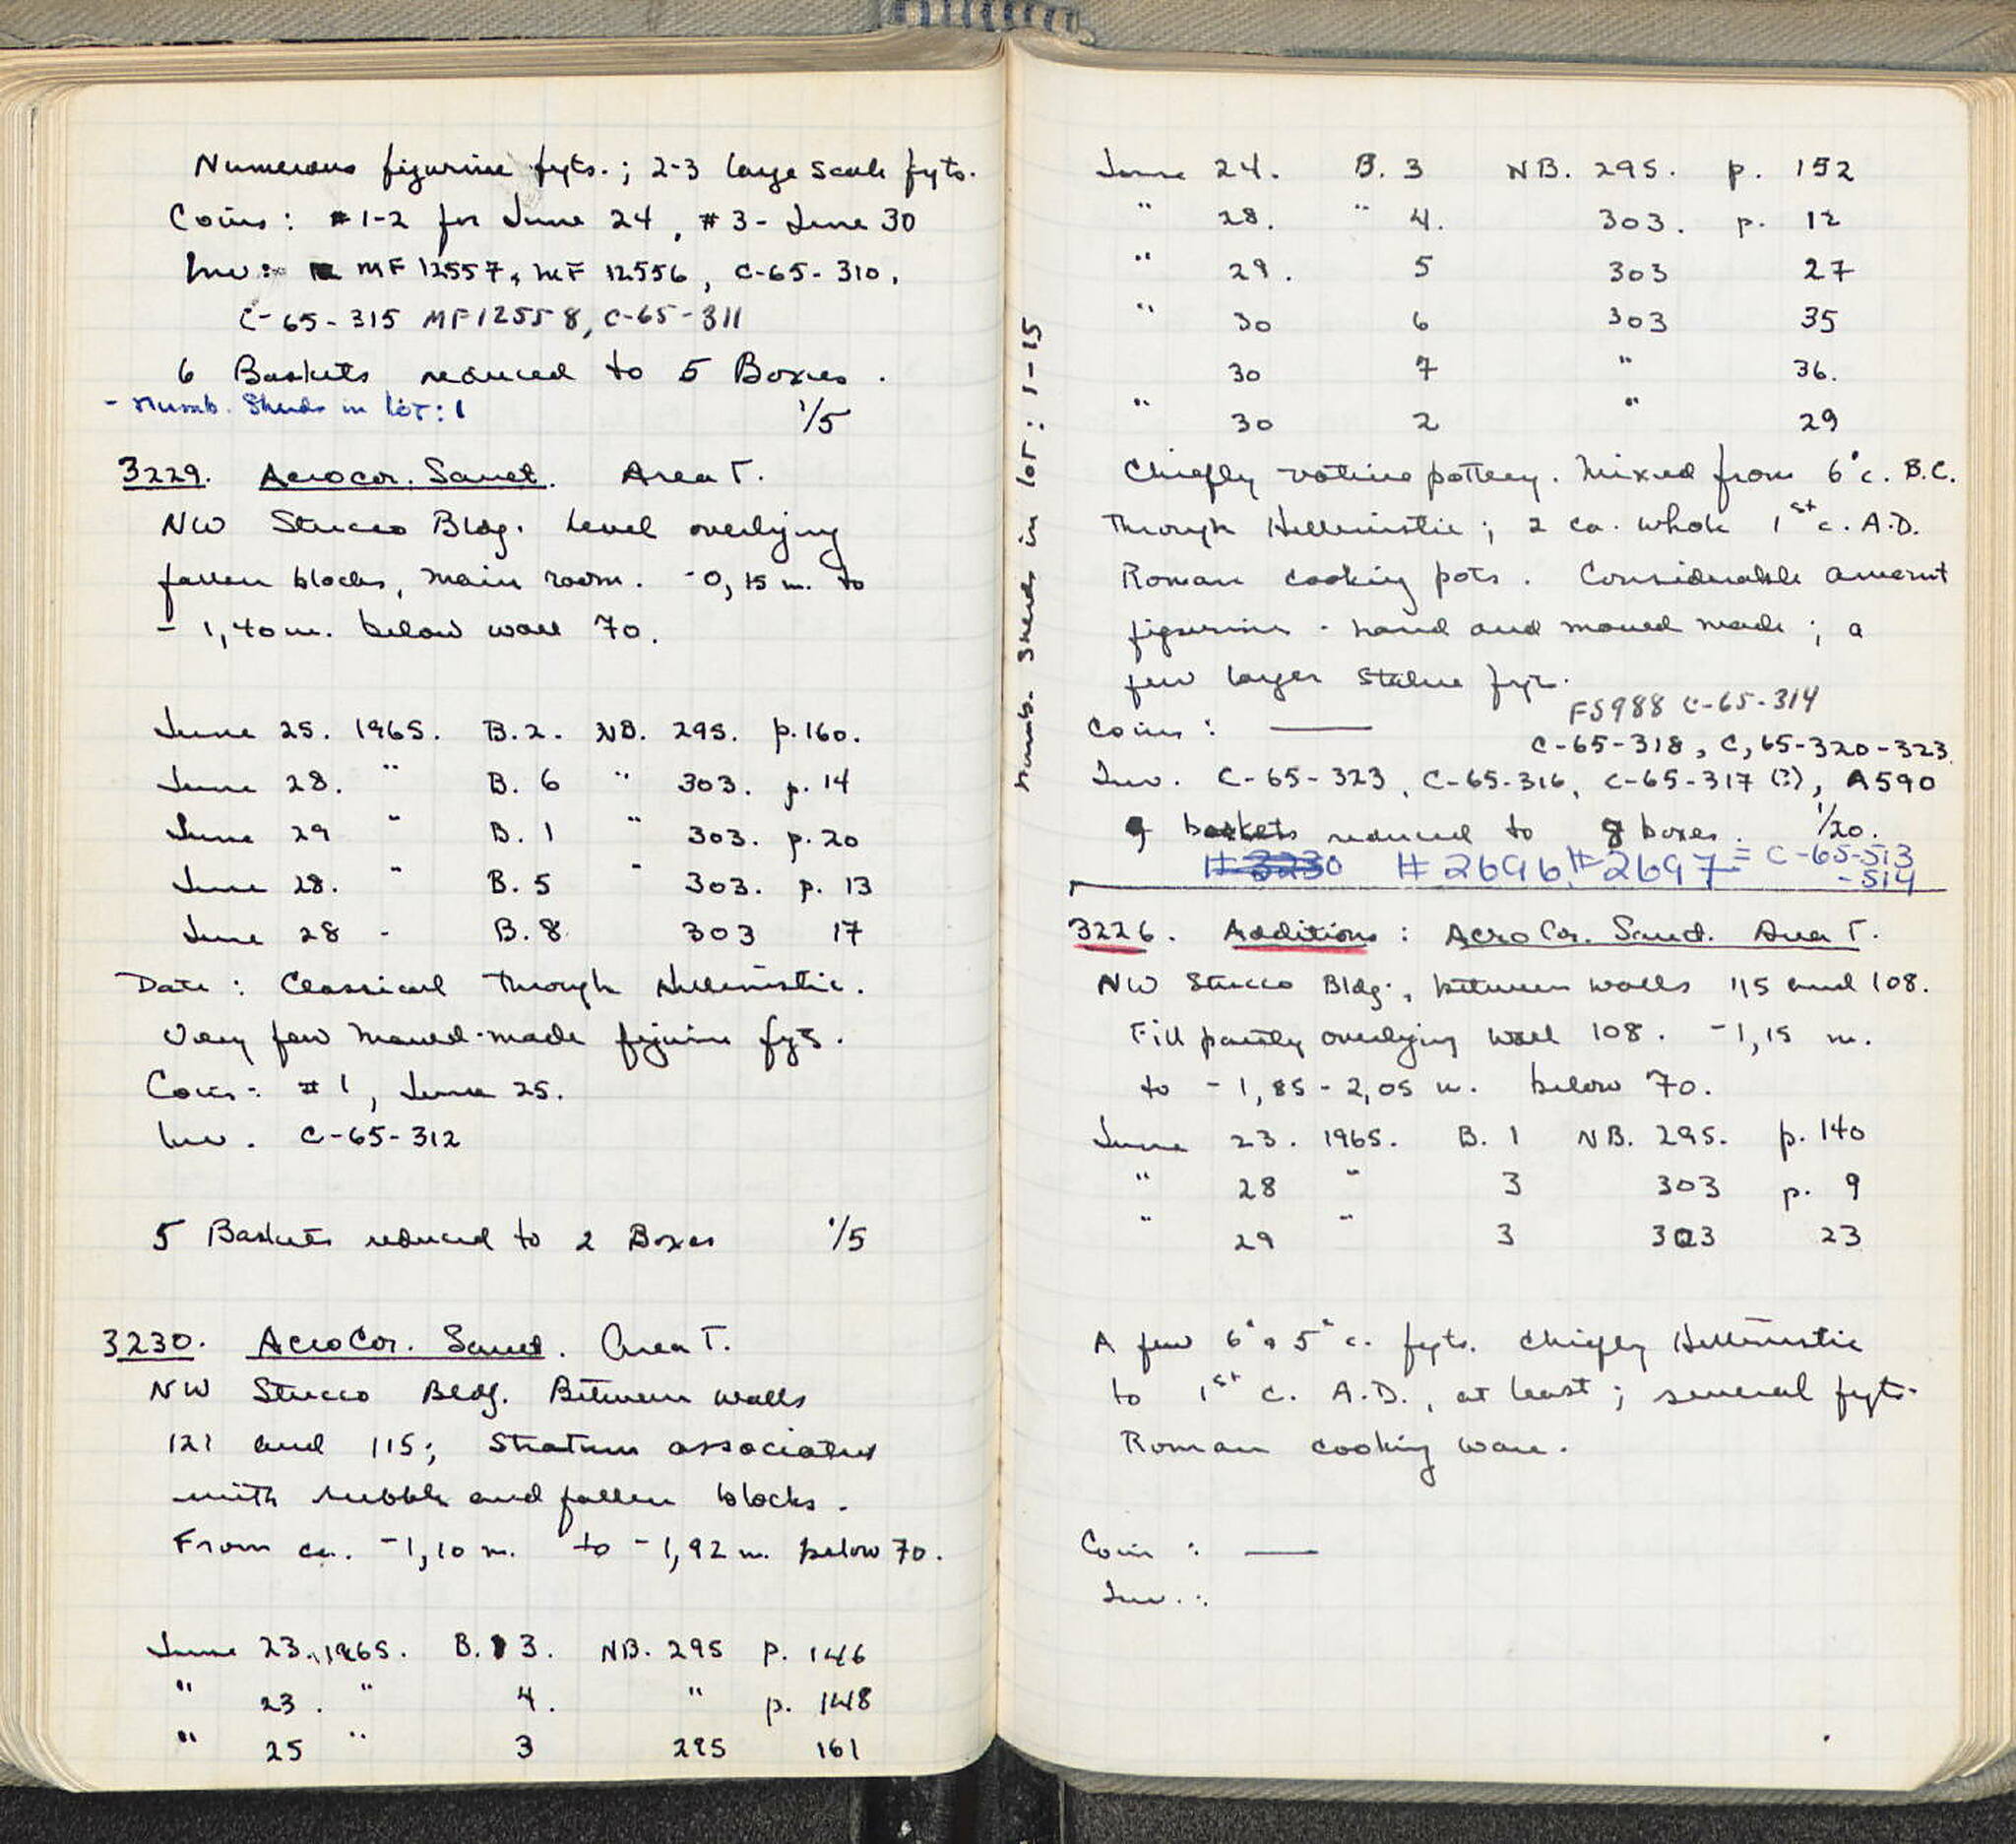 Numerous figurine fgts.; 2-3 large scale fgts.
Coins: #1-2 for June 24, #3 - June 30
Inv: MF 12557, MF 12556, C-65-310,
C-65-315 MF12558, C-65-311
6 Baskets reduced to 5 Boxes.
- Numb. Sherds in lot: 1
1/5
3229. Acrocor. Sanct. Area T.
NW Stucco Bldg. Level overlying
fallen blocks, main room. -0,15 m. to
- 1,40 m. below wall 70.
June 25. 1965. B.2. NB. 295. p.160.
June 28. " B. 6 " 303. p. 14
June 29 " B. 1 " 303. p. 20
June 28. " B. 5 " 303. p. 13
June 28 - B. 8. 303 17
Date: Classical through Hellenistic.
Very few mould-made figurine fgts.
Coins: #1, June 25.
Inv. C-65-312
5 Baskets reduced to 2 Boxes 1/5
3230. AcroCor. Sanct. Area T.
NW Stucco Bldg. Between walls
121 and 115; Stratum associated
with rubble and fallen blocks.
From ca. -1,10 m. to -1,92 m. below 70.
June 23, 1965. B. 3. NB. 295 p. 146
" 23. " 4. " p. 148
" 25 " 3 295 161
Numb. Sherds in lot: 1-15
June 24. B. 3 NB. 295. p. 152
" 28. " 4. 303. p. 12
" 29. 5 303 27
" 30 6 303 35
30 7 " 36.
" 30 2 " 29
Chiefly votive pottery. Mixed from 6° c. B.C.
through Hellenistic; 2 ca. whole 1st c. A.D.
Roman cooking pots. Considerable amount
figurines - hand and mould made; a
few larger statue fgts.
FS988 C-65-314
Coins: —
C-65-318, C,65-320-323.
Inv. C-65-323, C-65-316, C-65-317 (?), A590
9 baskets reduced to 8 boxes. 1/20.
#3230 #2696, #2697 = C-65-513
-514
3226. Additions: AcroCor. Sanct. Area T.
NW Stucco Bldg., between walls 115 and 108.
Fill partly overlying wall 108. -1,15 m.
to -1,85-2,05 m. below 70.
June 23. 1965. B. 1 NB. 295. p. 140
" 28 " 3 303 p. 9
" 29 " 3 303 23
A few 6° & 5° c. fgts. Chiefly Hellenistic
to 1st c. A.D., at least; several fgts.
Roman cooking ware.
Coin: —
Inv.: